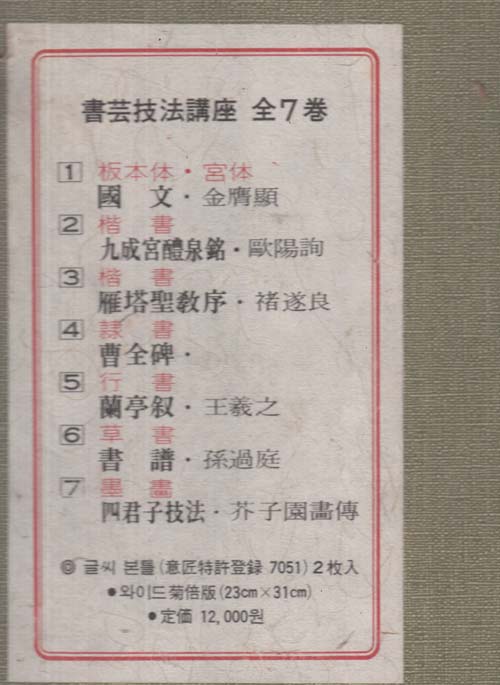 書芸技法講座 全7巻
1 板本体・宮体
國 文・金膺顯
2 楷 書
九成宮醴泉銘・歐陽詢
3 楷 書
雁塔聖敎序・褚遂良
4 隷 書
曹全碑・
5 行 書
蘭亭叙・王羲之
6 草 書
書 譜・孫過庭
7 墨 畵
四君子技法・芥子園畵傳
◎ 글씨 본틀 (意匠特許登録 7051) 2枚入
●와이드菊倍版 (23cm×31cm)
●定価 12,000원